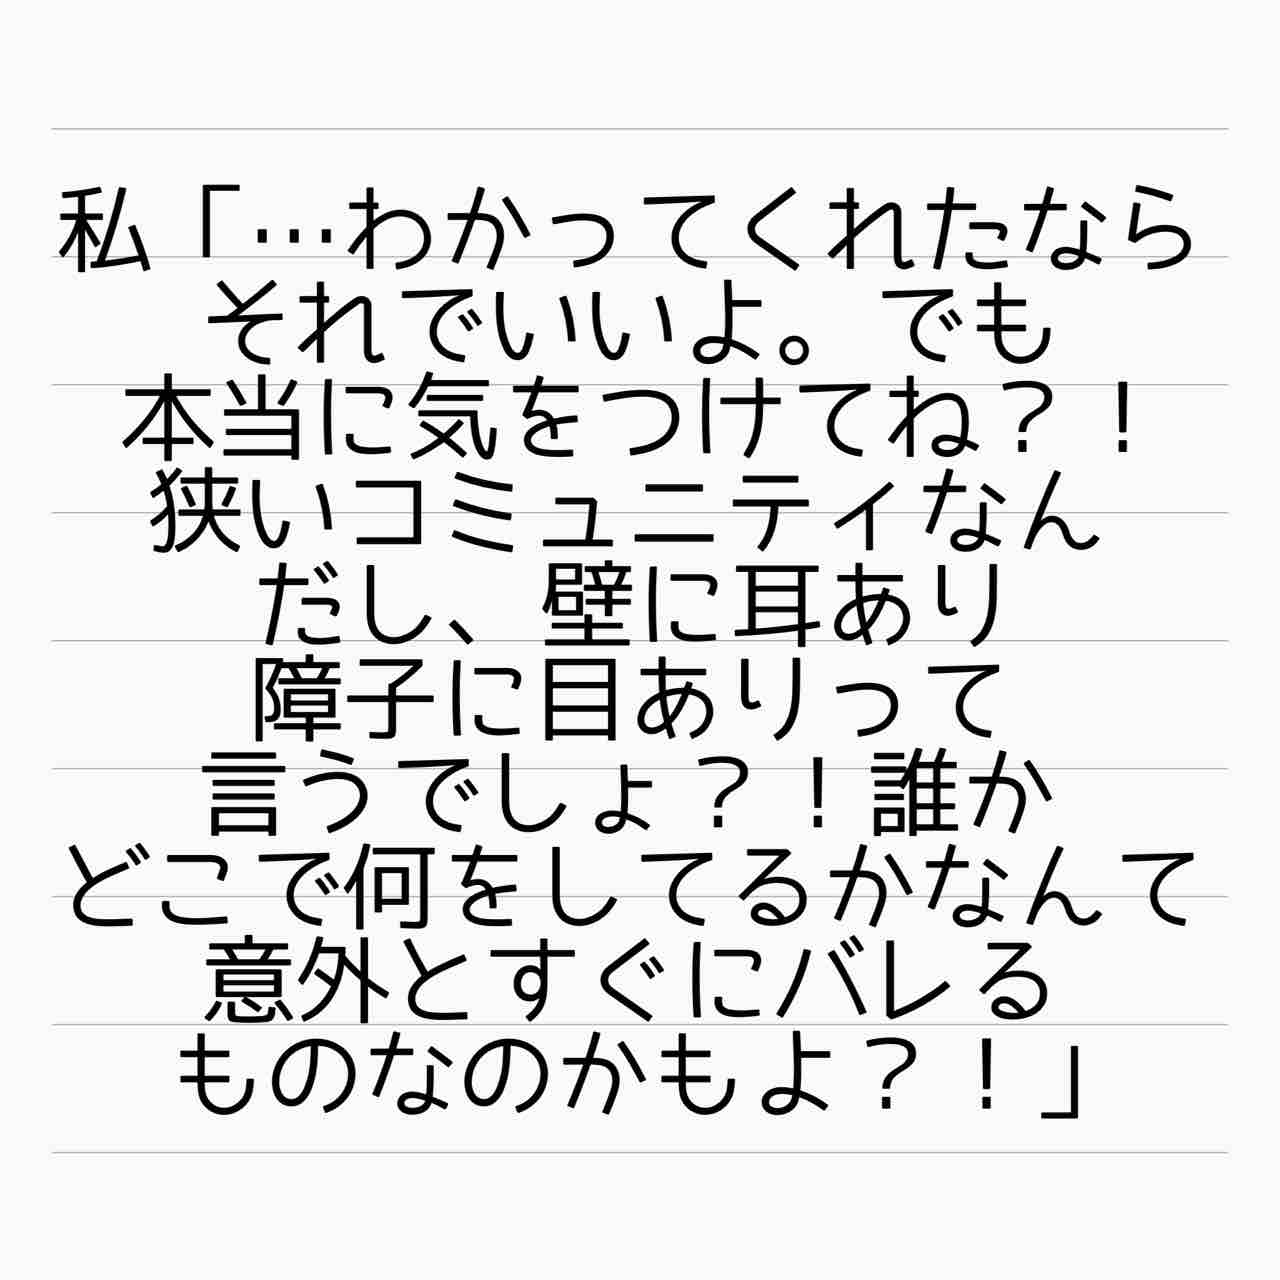 私「…わかってくれたなら
それでいいよ。でも
本当に気をつけてね？！
狭いコミュニティなん
だし、壁に耳あり
障子に目ありって
言うでしょ？！誰か
どこで何をしてるかなんて
意外とすぐにバレる
ものなのかもよ？！」